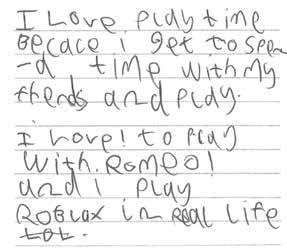 I Love play time
Becace i get to spen
-d time with my
friends and play.
I Love! to Play
With. Romeo!
and i play
Roblox in Real Life
Lot.